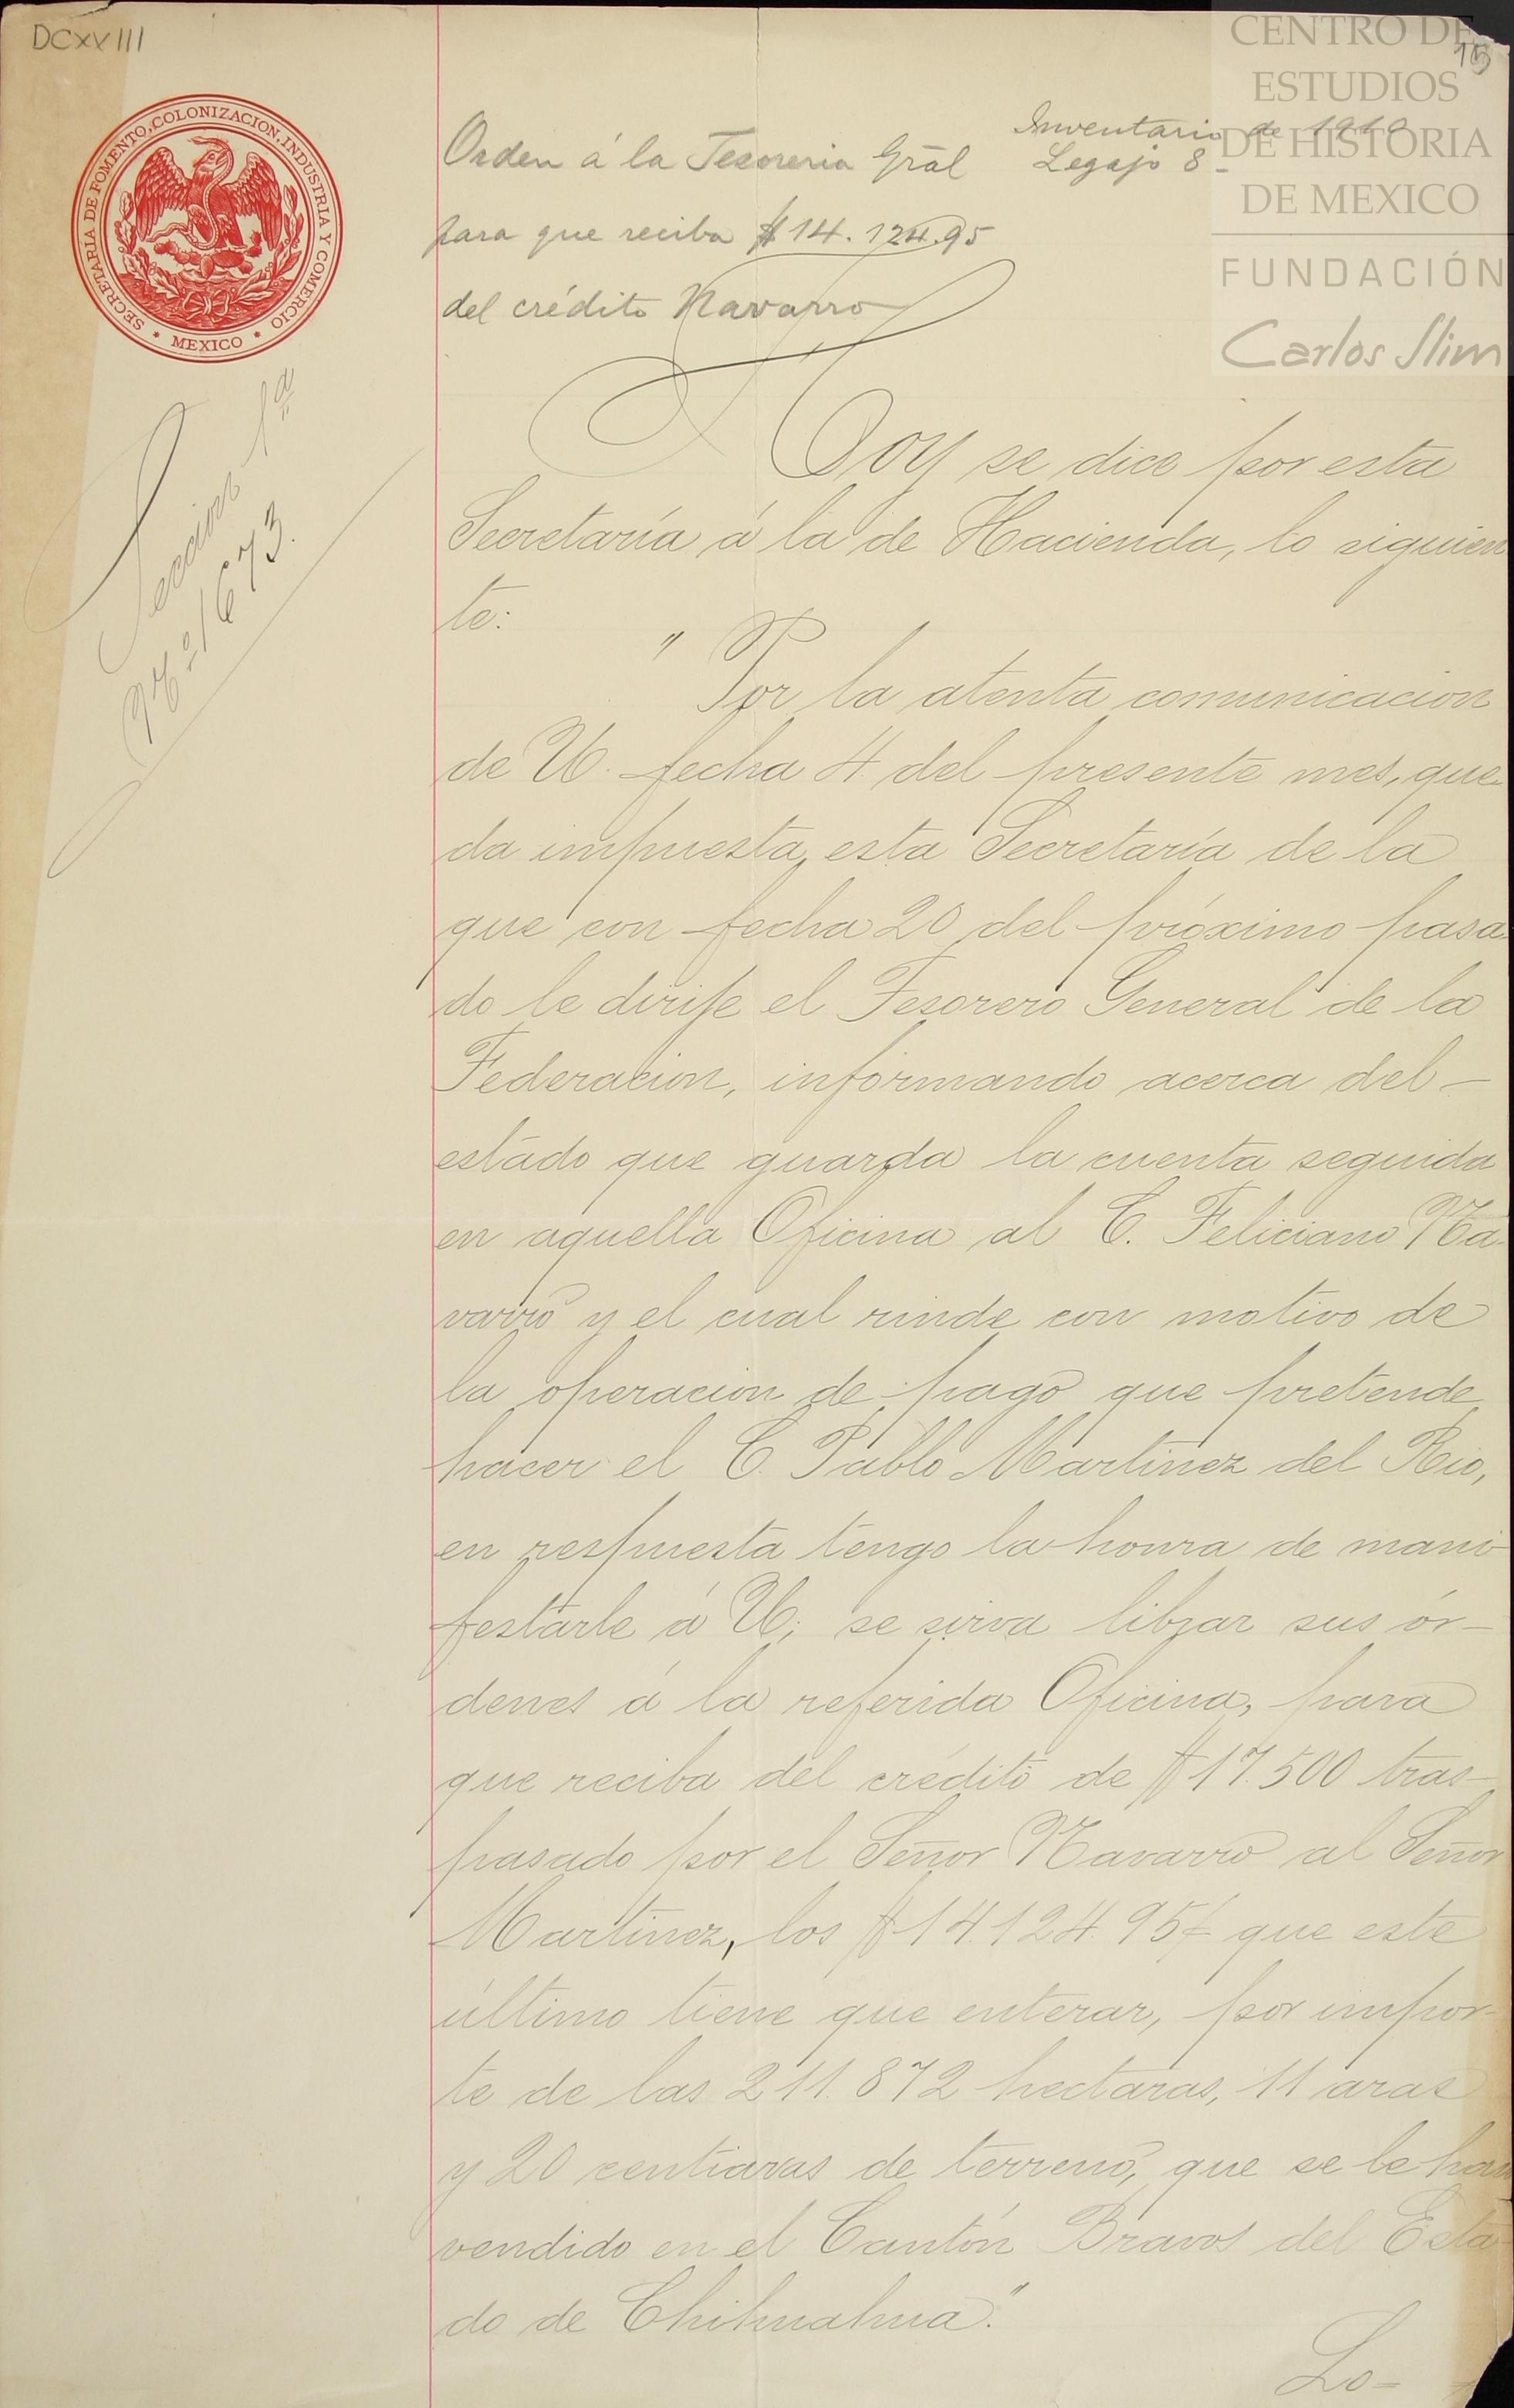 DCXVIII
CENTRO DE
ESTUDIOS
DE HISTORIA
DE MEXICO
FUNDACIÓN
Carlos Slim
SECRETARIA DE FOMENTO, COLONIZACION, INDUSTRIA Y COMERCIO
* MEXICO *
Inventario de 1910
Legajo 8-
Orden á la Tesoreria Gral
para que reciba $14.124.95
del crédito Navarro
Seccion 1ª
Nº 1673.
Hoy se dice por esta
Secretaría á la de Hacienda, lo siguien
te:
" Por la atenta comunicacion
de U. fecha 4 del presente mes, que
da impuesta esta Secretaría de la
que con fecha 20 del próximo pasa
do le dirije el Tesorero General de la
Federacion, informando acerca del-
estado que guarda la cuenta seguida
en aquella Oficina al C. Feliciano Na
varro y el cual rinde con motivo de
la operacion de pago que pretende
hacer el C. Pablo Martinez del Rio,
en respuesta tengo la honra de mani
festarle á U; se sirva librar sus ór-
denes á la referida Oficina, para
que reciba del crédito de $17.500 tras-
pasado por el Señor Navarro al Señor
Martinez, los $14.124.95 que este
último tiene que enterar, por impor-
te de las 211.872 hectaras, 11 aras
y 20 centiaras de terreno, que se le han
vendido en el Cantón Bravos del Esta
do de Chihuahua."
Lo-